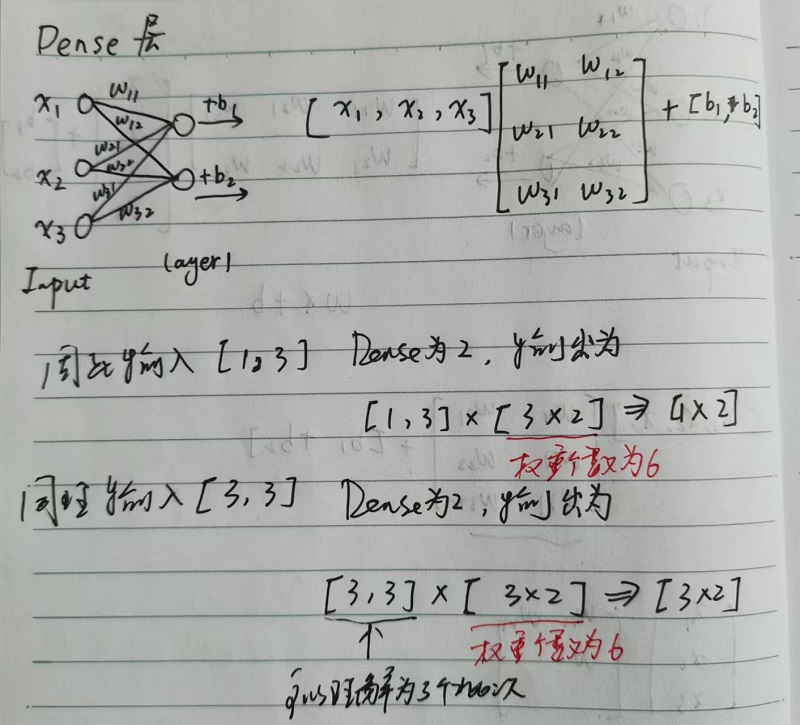 Dense 层
x1 w11 +b1
w12
x2 w21 w22 +b2
w31
x3 w32
Input layer1
[ x1, x2, x3 ] [ w11 w12 w21 w22 w31 w32 ] + [b1, b2]
输入 [1, 3] Dense为2, 输出为
[1, 3] × [ 3 × 2 ] ⇒ [1 × 2]
权重个数为6
同理 输入 [3, 3] Dense为2, 输出为
[3, 3] × [ 3×2 ] ⇒ [3×2]
权重个数为6
可以理解为3个